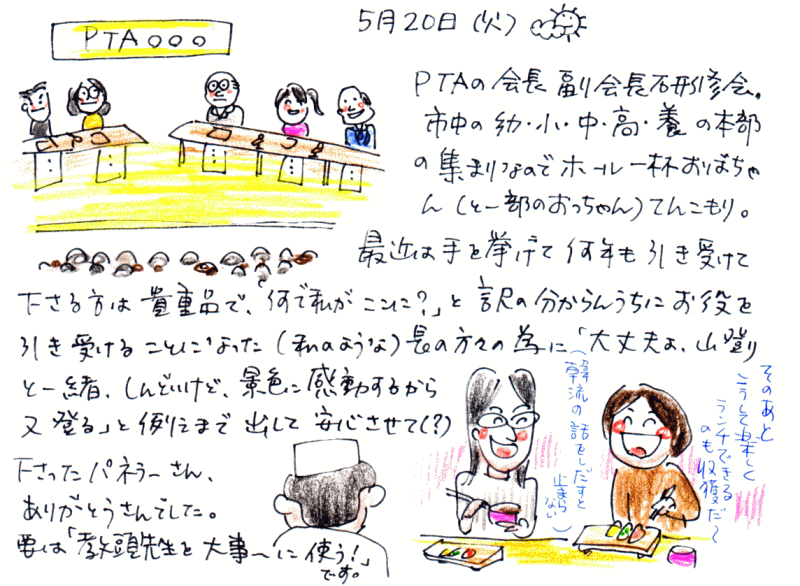 PTA○○○
5月20日(火)
PTAの会長副会長研修会。
市中の幼・小・中・高・養の本部
の集まりなのでホール一杯おばちゃ
ん(と一部のおっちゃん)てんこもり。
最近は手を挙げて何年も引き受けて
下さる方は貴重品で、「何で私がここに?」と訳の分からんうちにお役を
引き受けることになった(私のような)長の方々の為に「大丈夫よ、山登り
と一緒、しんどいけど、景色に感動するから
又登る」と例えまで出して安心させて(?)
下さったパネラーさん、
ありがとうさんでした。
要は「教頭先生を大事〜に使う!」
です。
(韓流の話をしだすと
止まらない)
そのあと
こうして楽しく
ランチできる
のも収穫だ〜